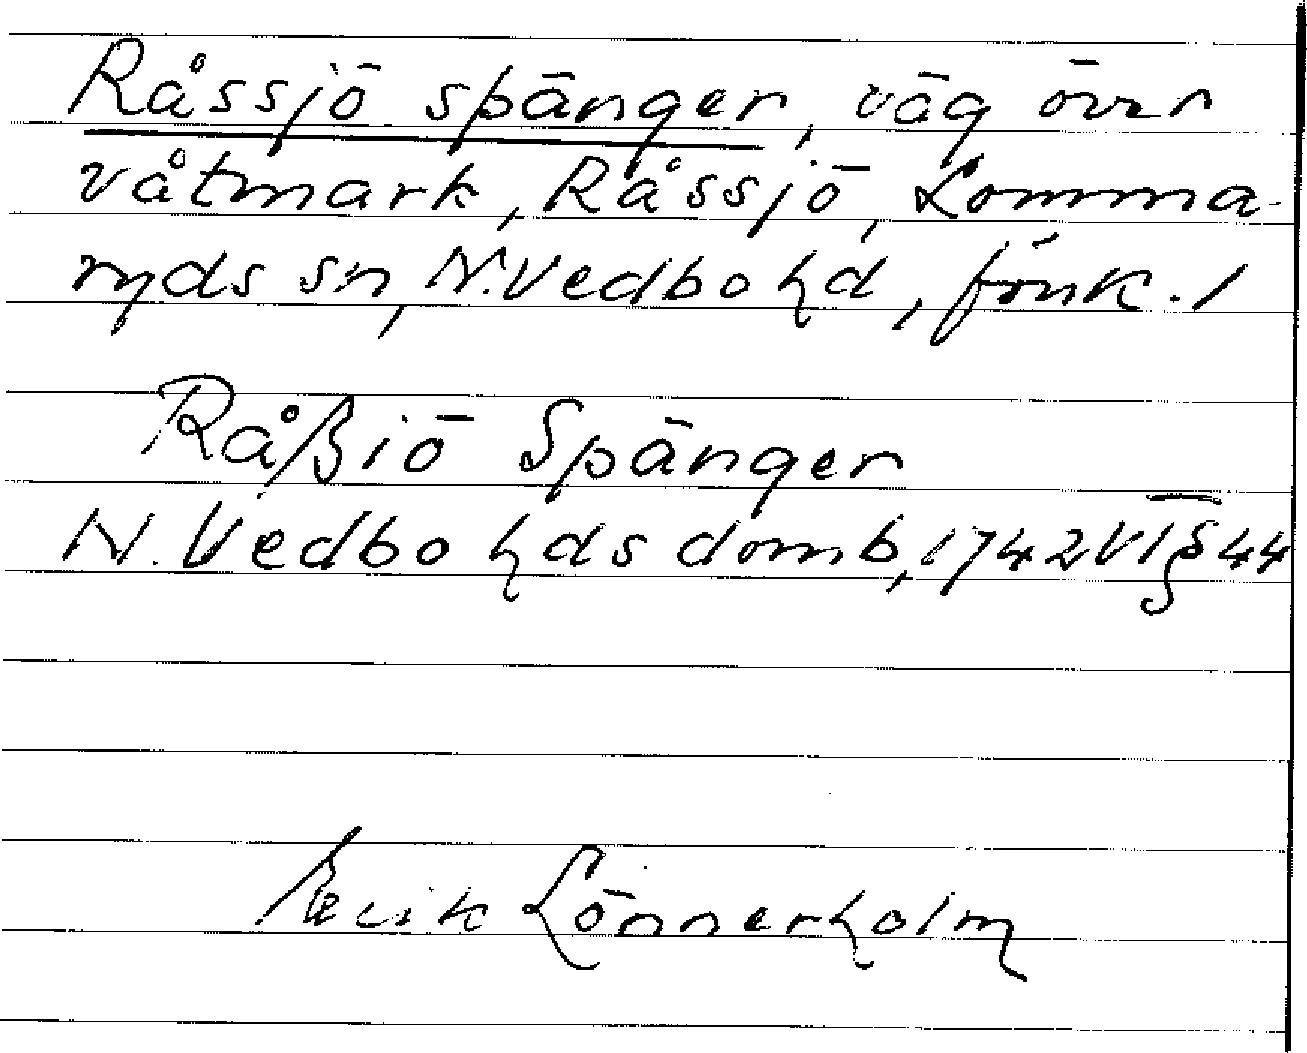 Råssjö spänger, väg över
våtmark, Råssjö, Lomma-
ryds sn, N. Vedbo hd, Jönk. l
Råßiö Spänger
N. Vedbo hds domb, 1742 VI § 44
Erik Lönnerholm